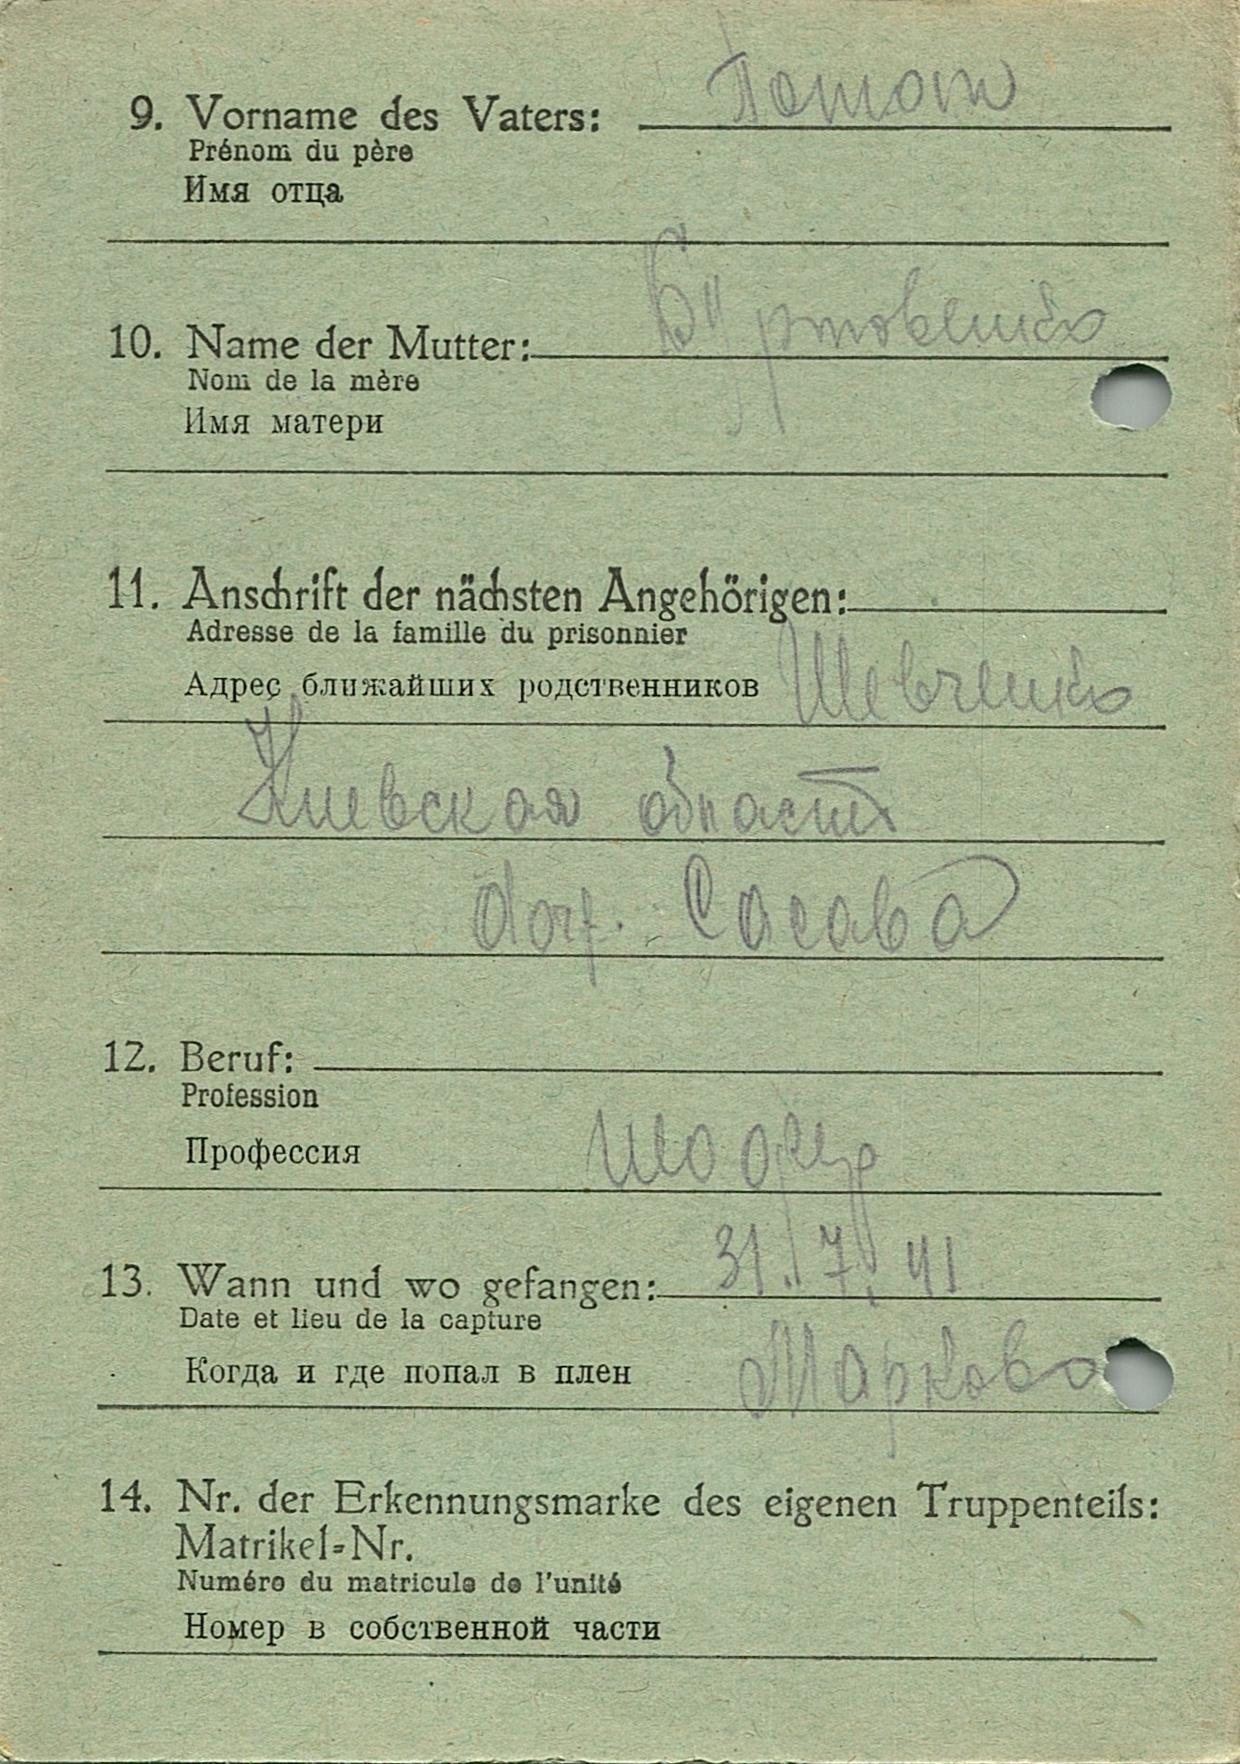 9. Vorname des Vaters:
Prénom du père
Имя отца
10. Name der Mutter:
Nom de la mère
Имя матери
11. Anschrift der nächsten Angehörigen:
Adresse de la famille du prisonnier
Адрес ближайших родственников Шевченко
Киевская область
dorf. Сасава
12. Beruf:
Profession
Профессия
13. Wann und wo gefangen: 31.7.41
Date et lieu de la capture
Когда и где попал в плен Марково
14. Nr. der Erkennungsmarke des eigenen Truppenteils:
Matrikel=Nr.
Numéro du matricule de l'unité
Номер в собственной части